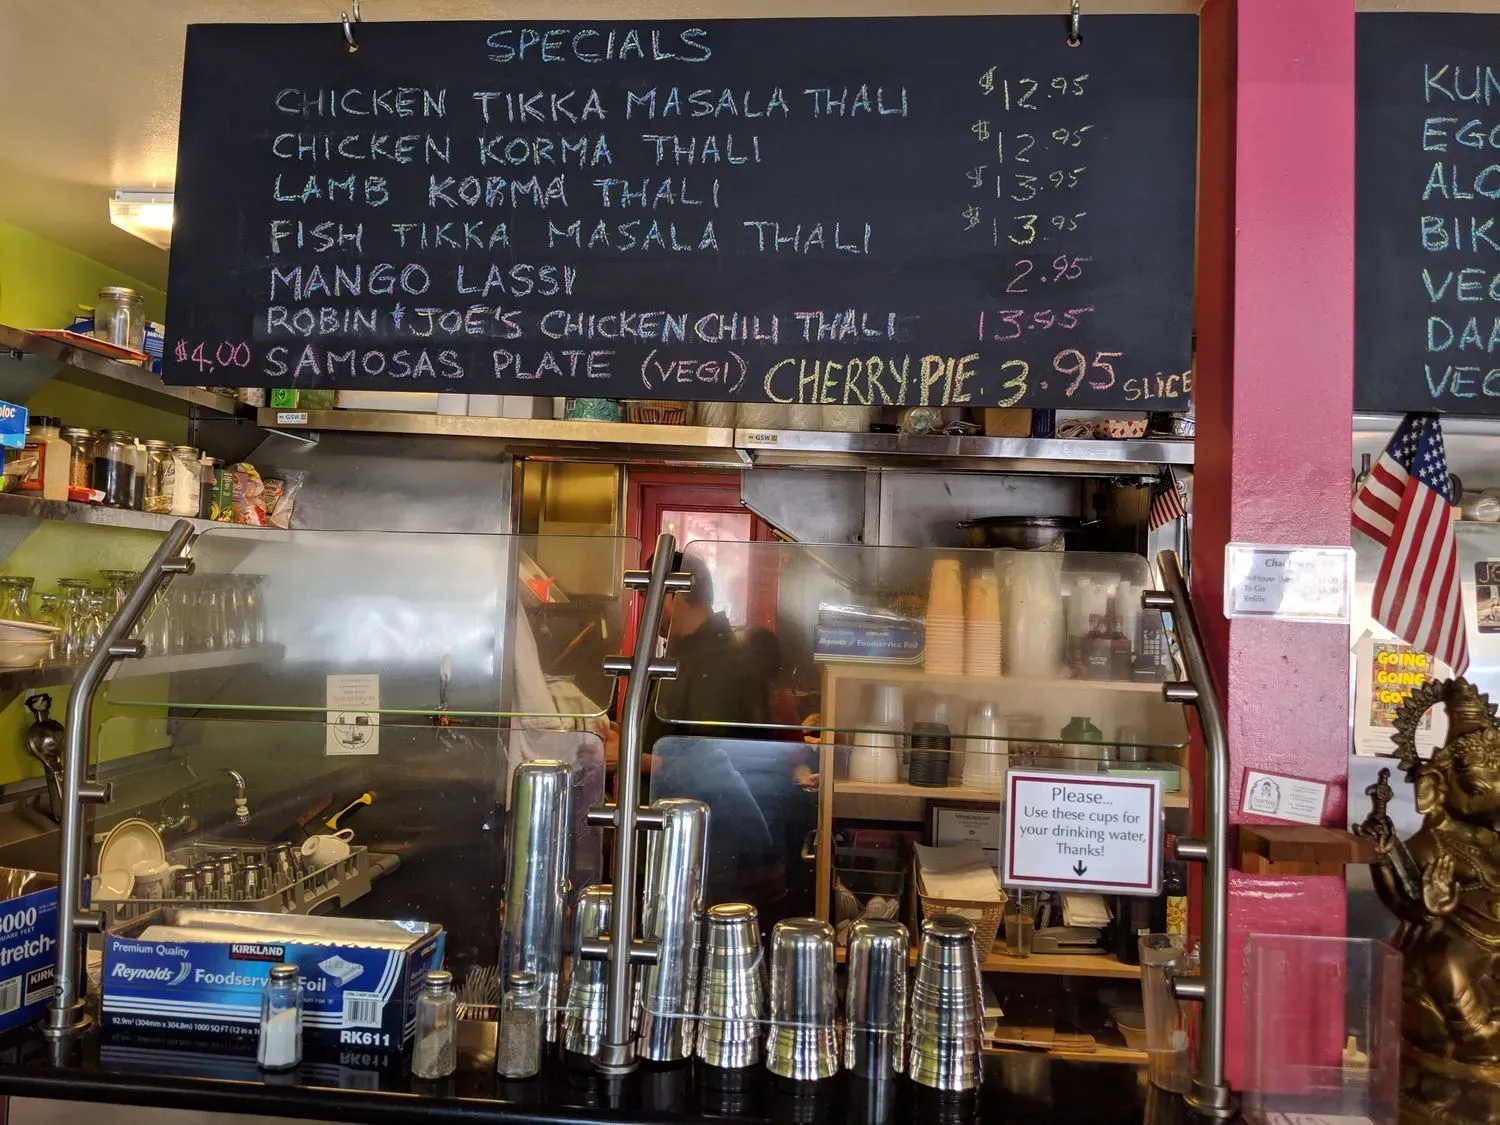 SPECIALS
CHICKEN TIKKA MASALA THALI $12.95
CHICKEN KORMA THALI $12.95
LAMB KORMA THALI $13.95
FISH TIKKA MASALA THALI $13.95
MANGO LASSI 2.95
ROBIN & JOE'S CHICKEN CHILI THALI 13.95
$4.00 SAMOSAS PLATE (VEGI) CHERRY PIE 3.95 SLICE
KUN
EGG
ALO
BIK
VEG
DAA
VEG
GSW
GSW
ploc
Chai
In-House
To Go
Refills
GOING,
GOING,
GO
Reynolds Foodservice Foil
Please...
Use these cups for
your drinking water,
Thanks!
3000
SQUARE FEET
Stretch-
KIRK
Premium Quality
KIRKLAND
Reynolds Foodservice Foil
92.9m² (304mm x 304.8m) 1000 SQ FT (12 in x
RK611